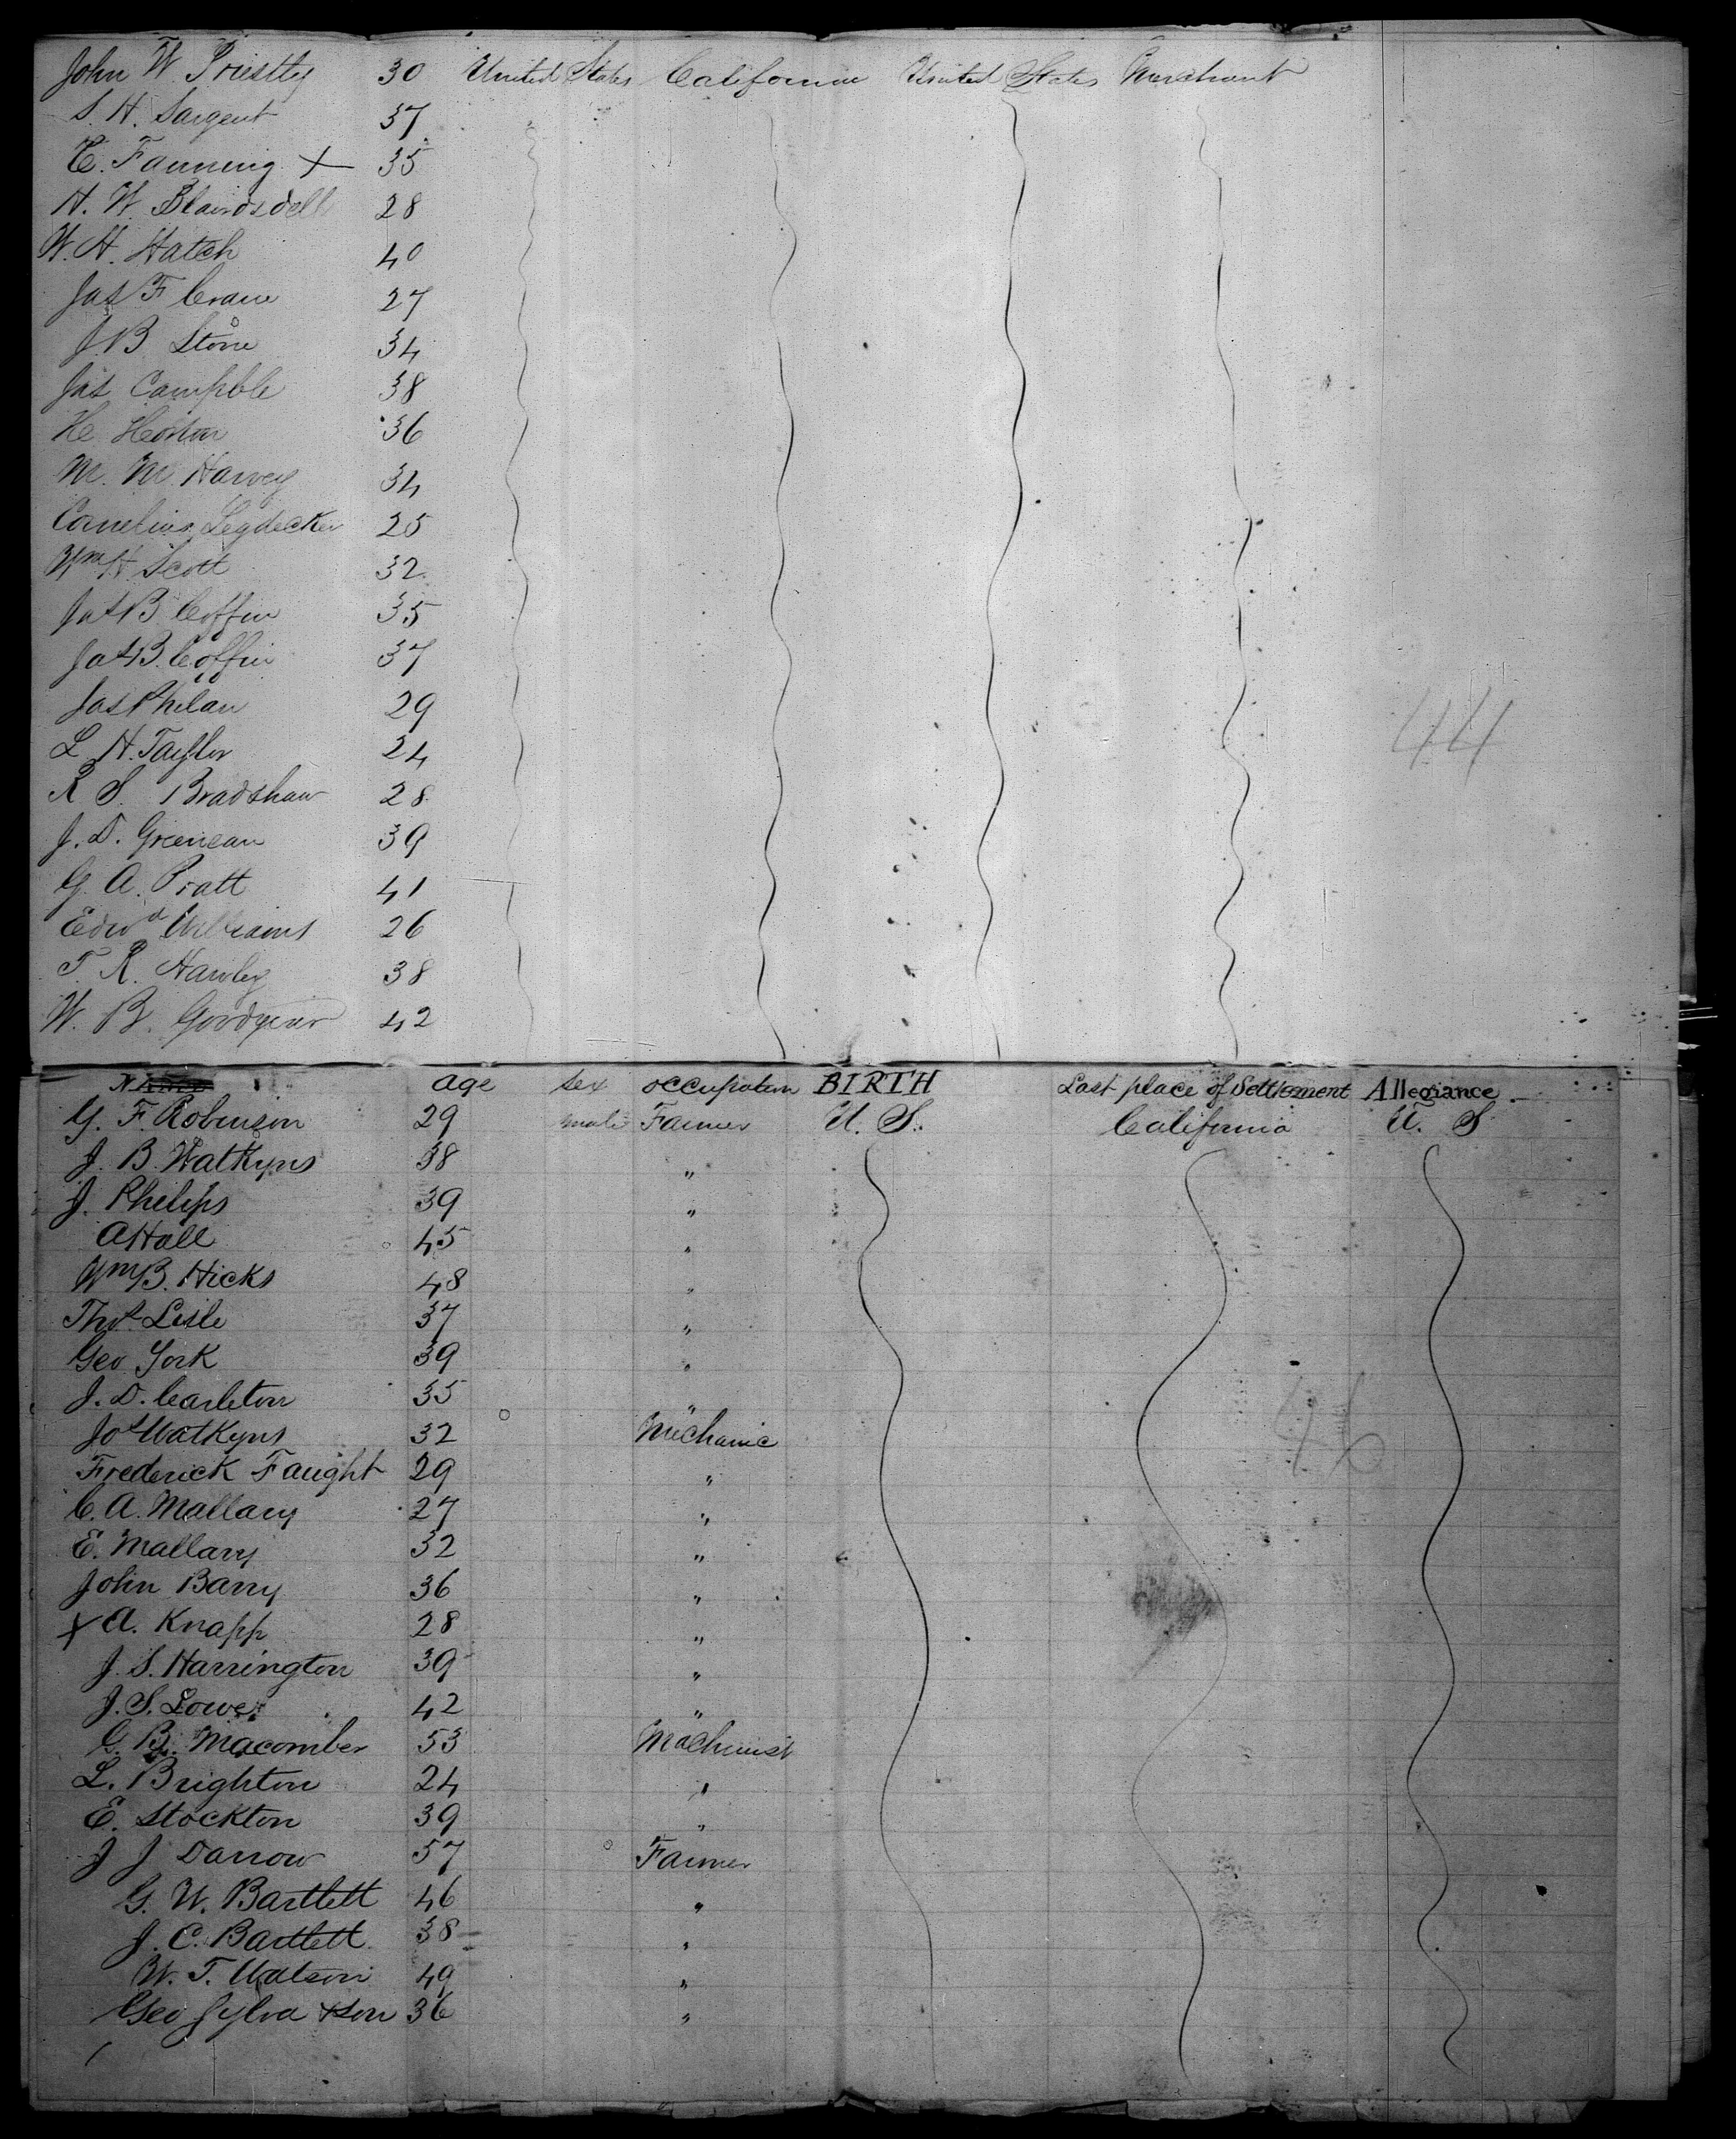 John W Priestly 30 United States California United States Merchant
S. H. Sargent 37
C. Fanning X 35
H. W. Blaindsdell 28
W. H. Hatch 40
Jas F Crane 27
J. B Stone 34
Jas Campble 38
36
M. M. Harvey 34
Cornelius Leydecker 25
Wm H. Scott 32
Jas B. Coffin 35
Jas B. Coffin 37
Jas Phelan 29
L H. Taylor 24
R S. Bradshaw 28
J. D. 39
G. A. Pratt 41
Edwd Williams 26
T R. Hawley 38
W. B. Goodyear 42
44
Age Sex occupation BIRTH Last place of Settlement Allegiance
G. F. Robinson 29 male Farmer U. S. California U. S
J. B. Watkyns 38 "
J. Philips 39 "
A Hall 45 "
Wm B. Hicks 48 "
Thos Lisle 37 "
Geo York 39 "
J. D. Carleton 35 "
Jos Watkyns 32 Mechanic
Frederick Faught 29 "
C. A. Mallary 27 "
E. Mallary 32 "
John Barry 36 "
X A. Knapp 28 "
J. S. Harrington 39 "
J. S. Lowe 42 "
G. B. Macomber 53 Machinist
L. Brighton 24 "
E. Stockton 39 "
J J Darrow 57 Farmer
G. W. Bartlett 46 "
J. C. Bartlett 38 "
W. T. Watson 49 "
Geo Sylva & son 36 "